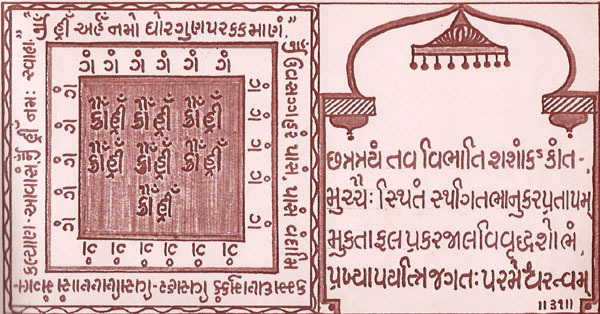 ૐ હ્રીઁ અર્હઁ નમો ઘોરગુણપરક્કમાણં.
ૐ ઉવસગ્ગહરં પાસં, પાસં વંદામિ
કલ્યાણ-આવાસં ૐ હ્રીઁ નમઃ સ્વાહા
ગં ગં ગં ગં ગં ગં
ગં ગં ગં ગં ગં
ગં ગં ગં ગં ગં ગં
ગં ગં ગં ગં ગં
ક્રોઁ હ્રીઁ ક્રોઁ હ્રીઁ ક્રોઁ હ્રીઁ
ક્રોઁ હ્રીઁ ક્રોઁ હ્રીઁ ક્રોઁ હ્રીઁ
ક્રોઁ હ્રીઁ
છત્રત્રયં તવ વિભાતિ શશાંકકાંત-,
મુચ્ચૈઃ સ્થિતં સ્થગિતભાનુકરપ્રતાપમ્
મુક્તાફલપ્રકરજાલવિવૃદ્ધશોભં,
પ્રખ્યાપયત્ત્રિજગતઃ પરમેશ્વરત્વમ્
॥૩૧॥